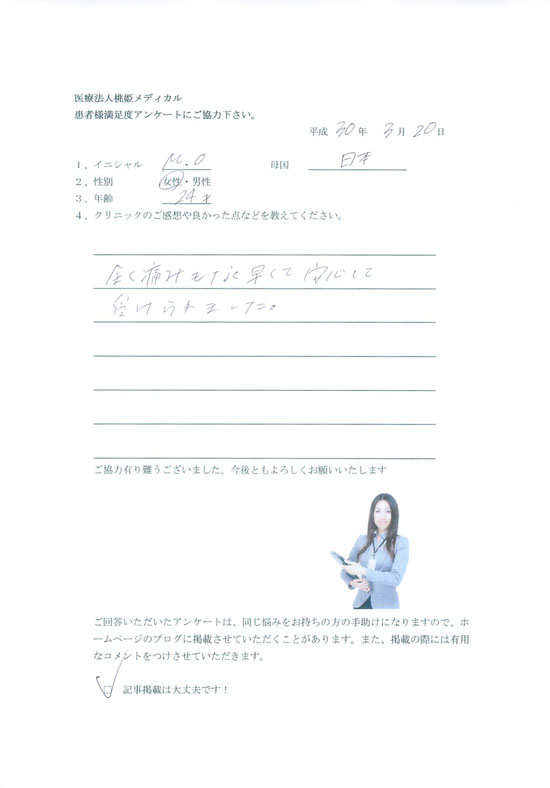 医療法人桃姫メディカル
患者様満足度アンケートにご協力下さい。
平成 30 年 3 月 20 日
1、イニシャル M.O 母国 日本
2、性別 女性・男性
3、年齢 24才
4、クリニックのご感想や良かった点などを教えてください。
全く痛みもなく早くて安心して
受けられました。
ご協力有り難うございました。今後ともよろしくお願いいたします
ご回答いただいたアンケートは、同じ悩みをお持ちの方の手助けになりますので、ホ
ームページのブログに掲載させていただくことがあります。また、掲載の際には有用
なコメントをつけさせていただきます。
□ 記事掲載は大丈夫です！